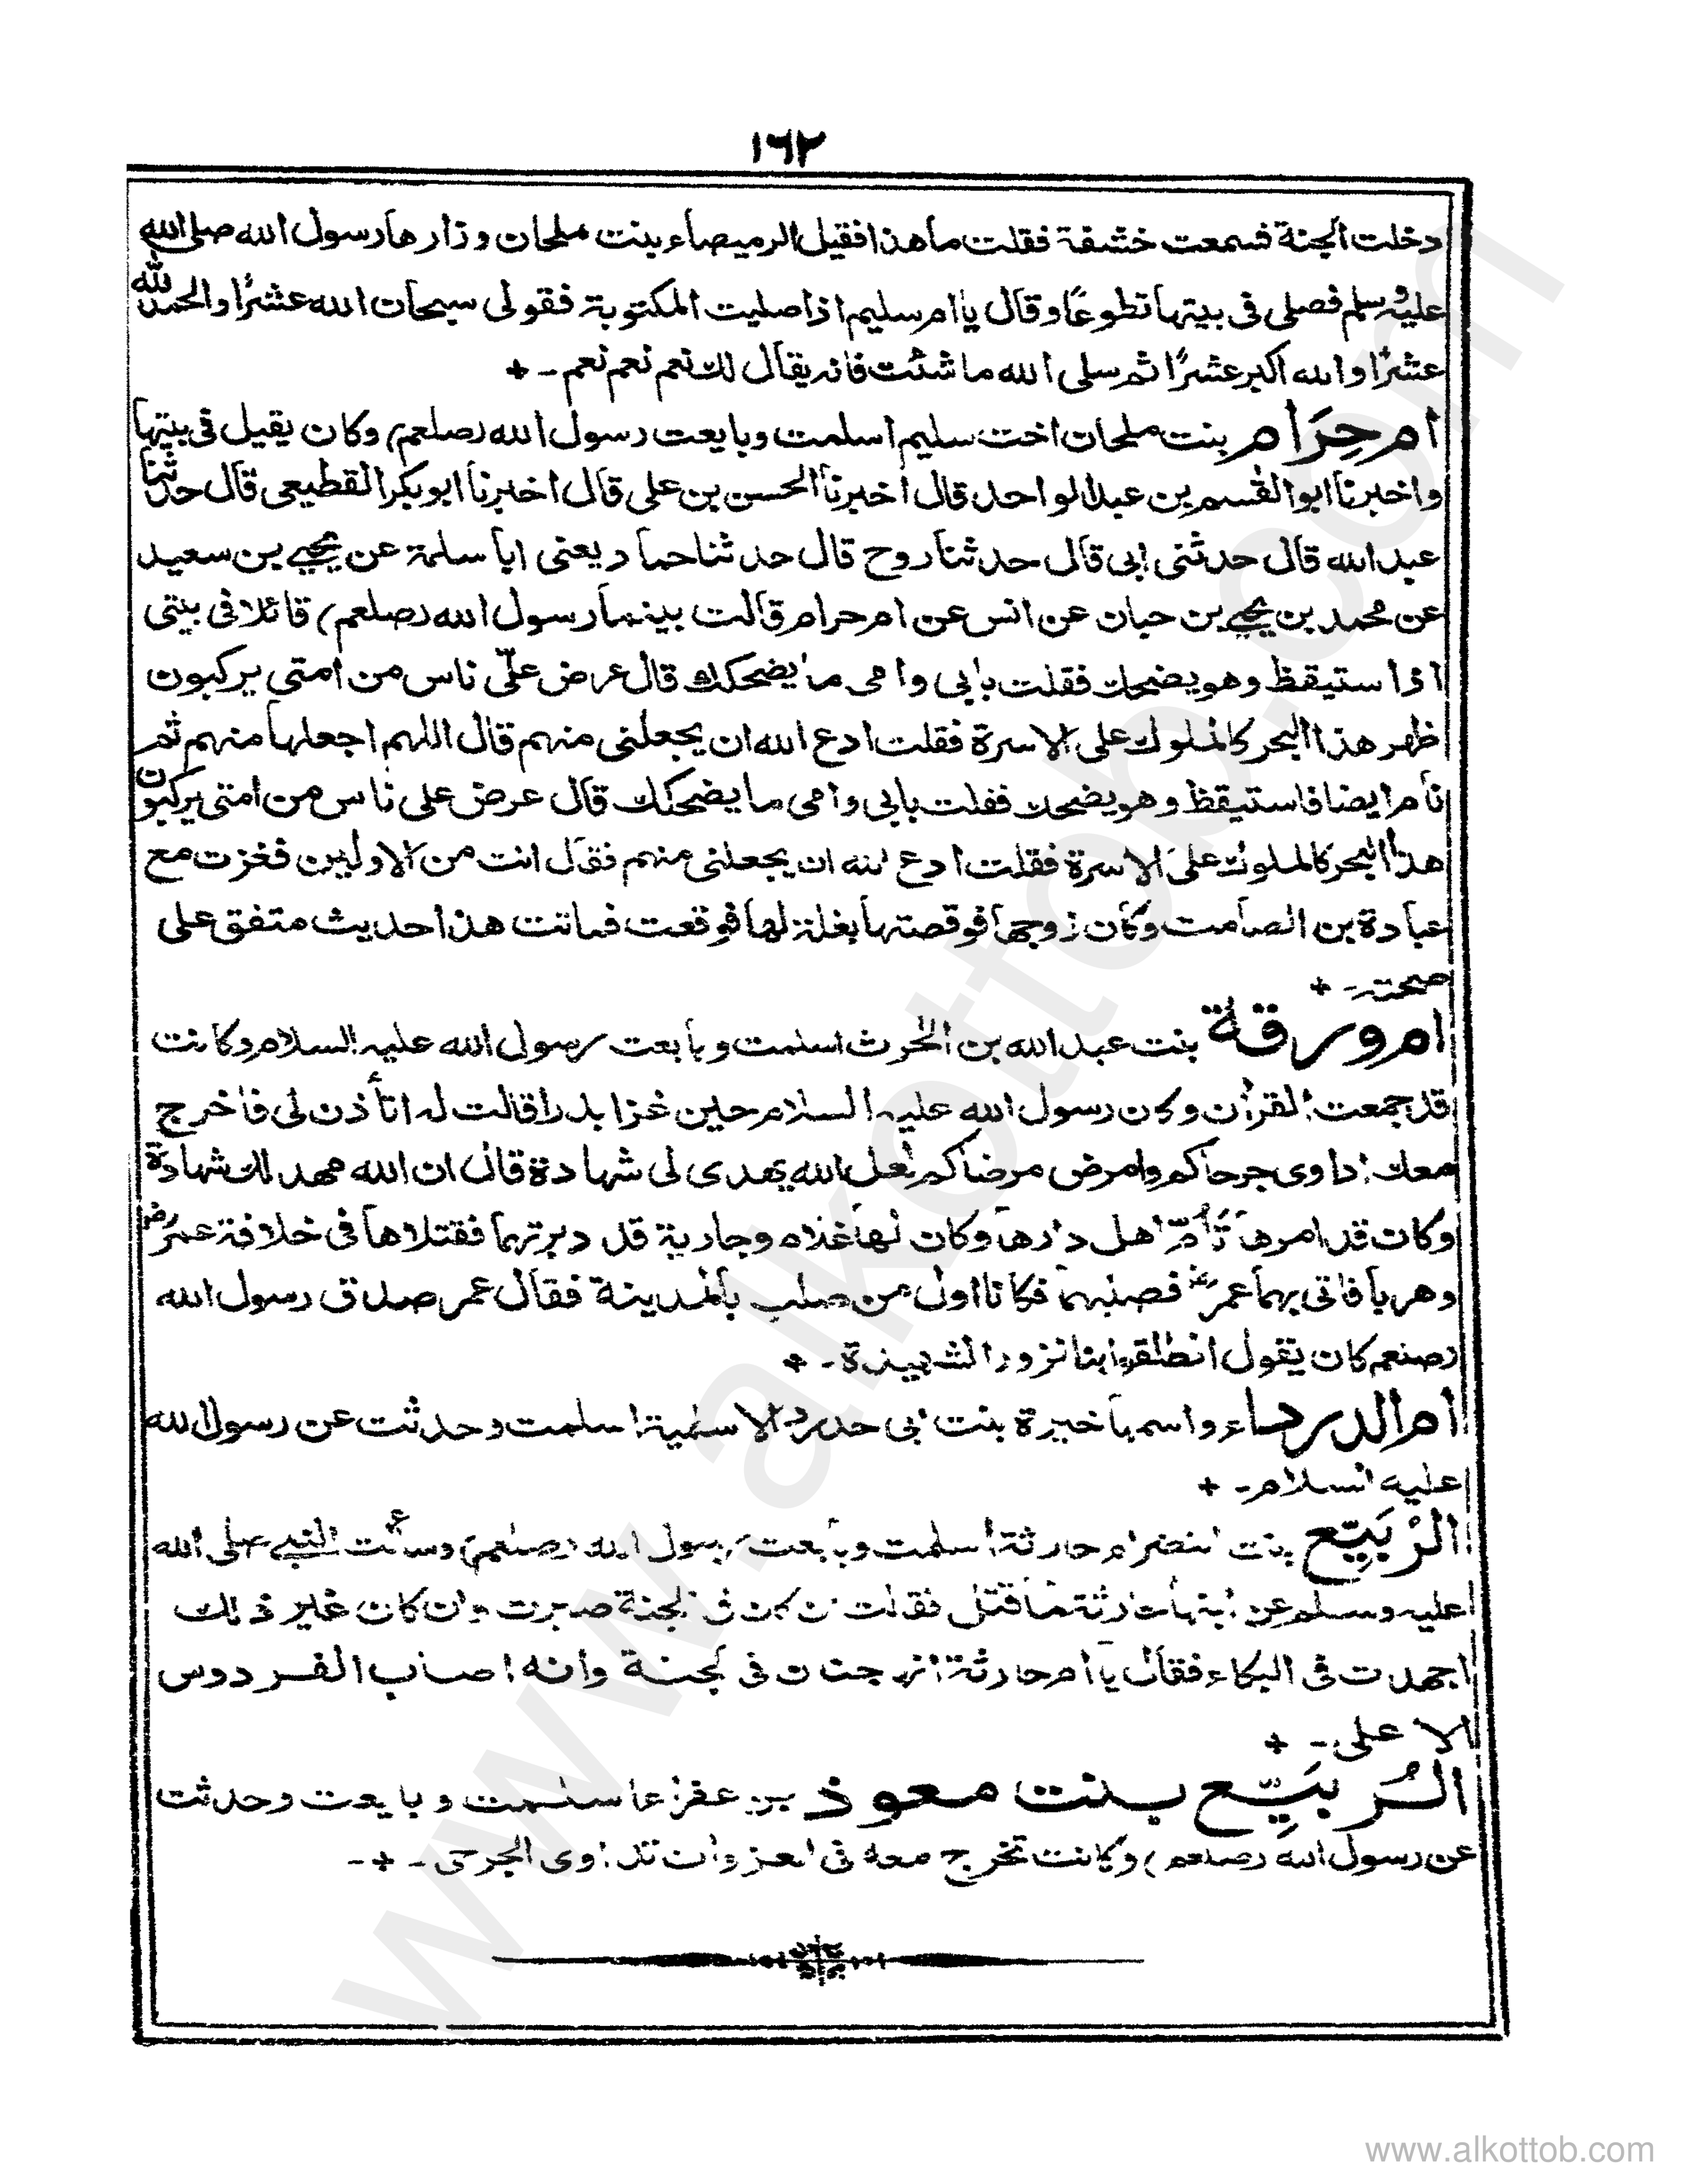 ١٦٢
دخلت الجنة فسمعت خشفة فقلت ما هذا فقيل الرميصاء بنت ملحان وزارها رسول الله صلى الله
عليه وسلم فصلى فى بيتها تطوعًا وقال يا ام سليم اذا صليت المكتوبة فقولى سبحان الله عشرًا والحمد لله
عشرًا والله اكبر عشرًا ثم سلى الله ما شئت فانه يقال لك نعم نعم نعم ـ +
ام حِرَام بنت ملحان اخت سليم اسلمت وبايعت رسول الله (صلعم) وكان يقيل فى بيتها
واخبرنا ابو القسم بن عبد الواحد قال اخبرنا الحسن بن على قال اخبرنا ابو بكر القطيعى قال حدثنا
عبد الله قال حدثنى ابى قال حدثنا روح قال حدثنا حماد يعنى ابا سلمة عن يحيى بن سعيد
عن محمد بن يحيى بن حبان عن انس عن ام حرام قالت بينما رسول الله (صلعم) قائلا فى بيتى
اذا ستيقظ وهو يضحك فقلت بابى وامى ما يضحكك قال عرض علىّ ناس من امتى يركبون
ظهر هذا البحر كالملوك على الاسرة فقلت ادع الله ان يجعلنى منهم قال اللهم اجعلها منهم ثم
نام ايضا فاستيقظ وهو يضحك فقلت بابى وامى ما يضحكك قال عرض على ناس من امتى يركبون
هذا البحر كالملوك على الاسرة فقلت ادع الله ان يجعلنى منهم فقال انت من الاولين فغزت مع
عبادة بن الصامت وكان زوجها فوقصتها بغلة لها فوقعت فماتت هذا حديث متفق على
صحته ـ +
ام ورقة بنت عبد الله بن الحرث اسلمت وبايعت رسول الله عليه السلام وكانت
قد جمعت القرآن وكان رسول الله عليه السلام حين غزا بدرا قالت له اتأذن لى فاخرج
معك اداوى جرحاكم وامرض مرضاكم لعل الله يهدى لى شهادة قال ان الله مهد لك شهادة
وكان قد امرها تَأُمّ اهل دارها وكان لها غلام وجارية قد دبرتهما فقتلاها فى خلافة عمر رض
وهربا فاتى بهما عمر رض فصلبهما فكانا اول من صلب بالمدينة فقال عمر صدق رسول الله
(صلعم كان يقول انطلقوا بنا نزور الشهيدة ـ +
ام الدرداء واسمها خيرة بنت ابى حدرد الاسلمية اسلمت وحدثت عن رسول الله
عليه السلام ـ +
الرُبَيِّع بنت النضر ام حارثة اسلمت وبايعت رسول الله (صلعم) وسألت النبى صلى الله
عليه وسلم عن ابنها حارثة لما قتل فقالت ان كان فى الجنة صبرت وان كان غير ذلك
اجهدت فى البكاء فقال يا ام حارثة انها جنات فى لجنة وانه اصاب الفردوس
الاعلى ـ +
الرُبَيِّع بنت معوذ بن عفراء اسلمت وبايعت وحدثت
عن رسول الله (صلعم) وكانت تخرج معه فى الغزوات تداوى الجرحى ـ + ـ
www.alkottob.com
www.alkottob.com